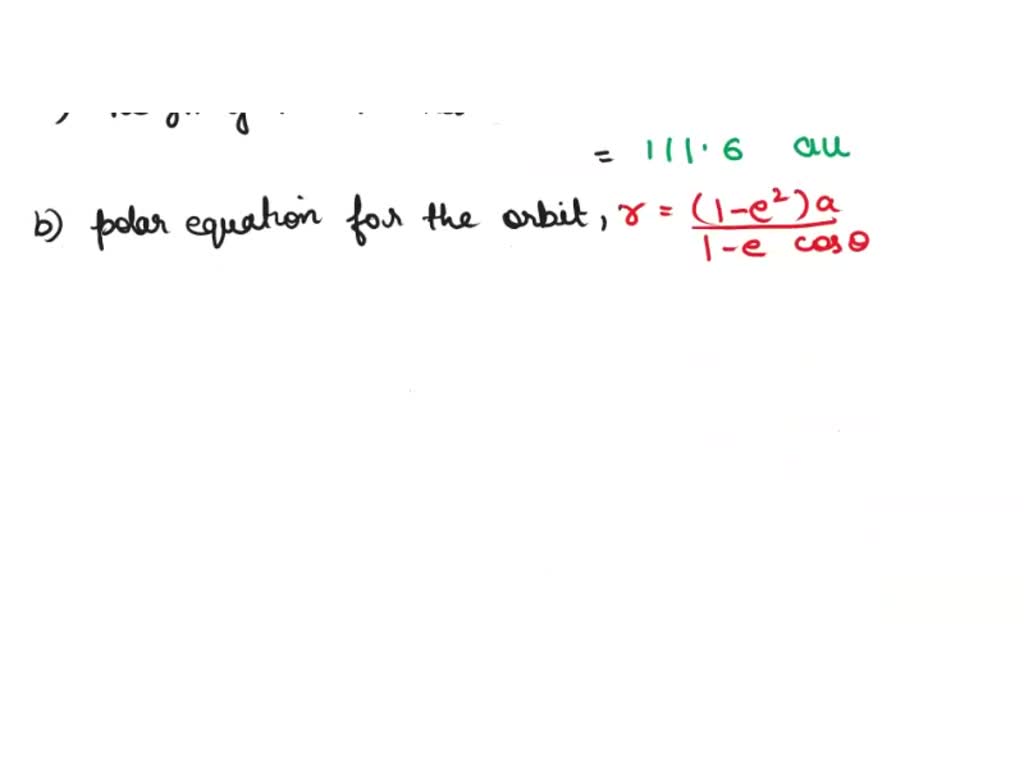 = 111.6 au
b) polar equation for the orbit, r = (1-e²)a
1-e cosθ